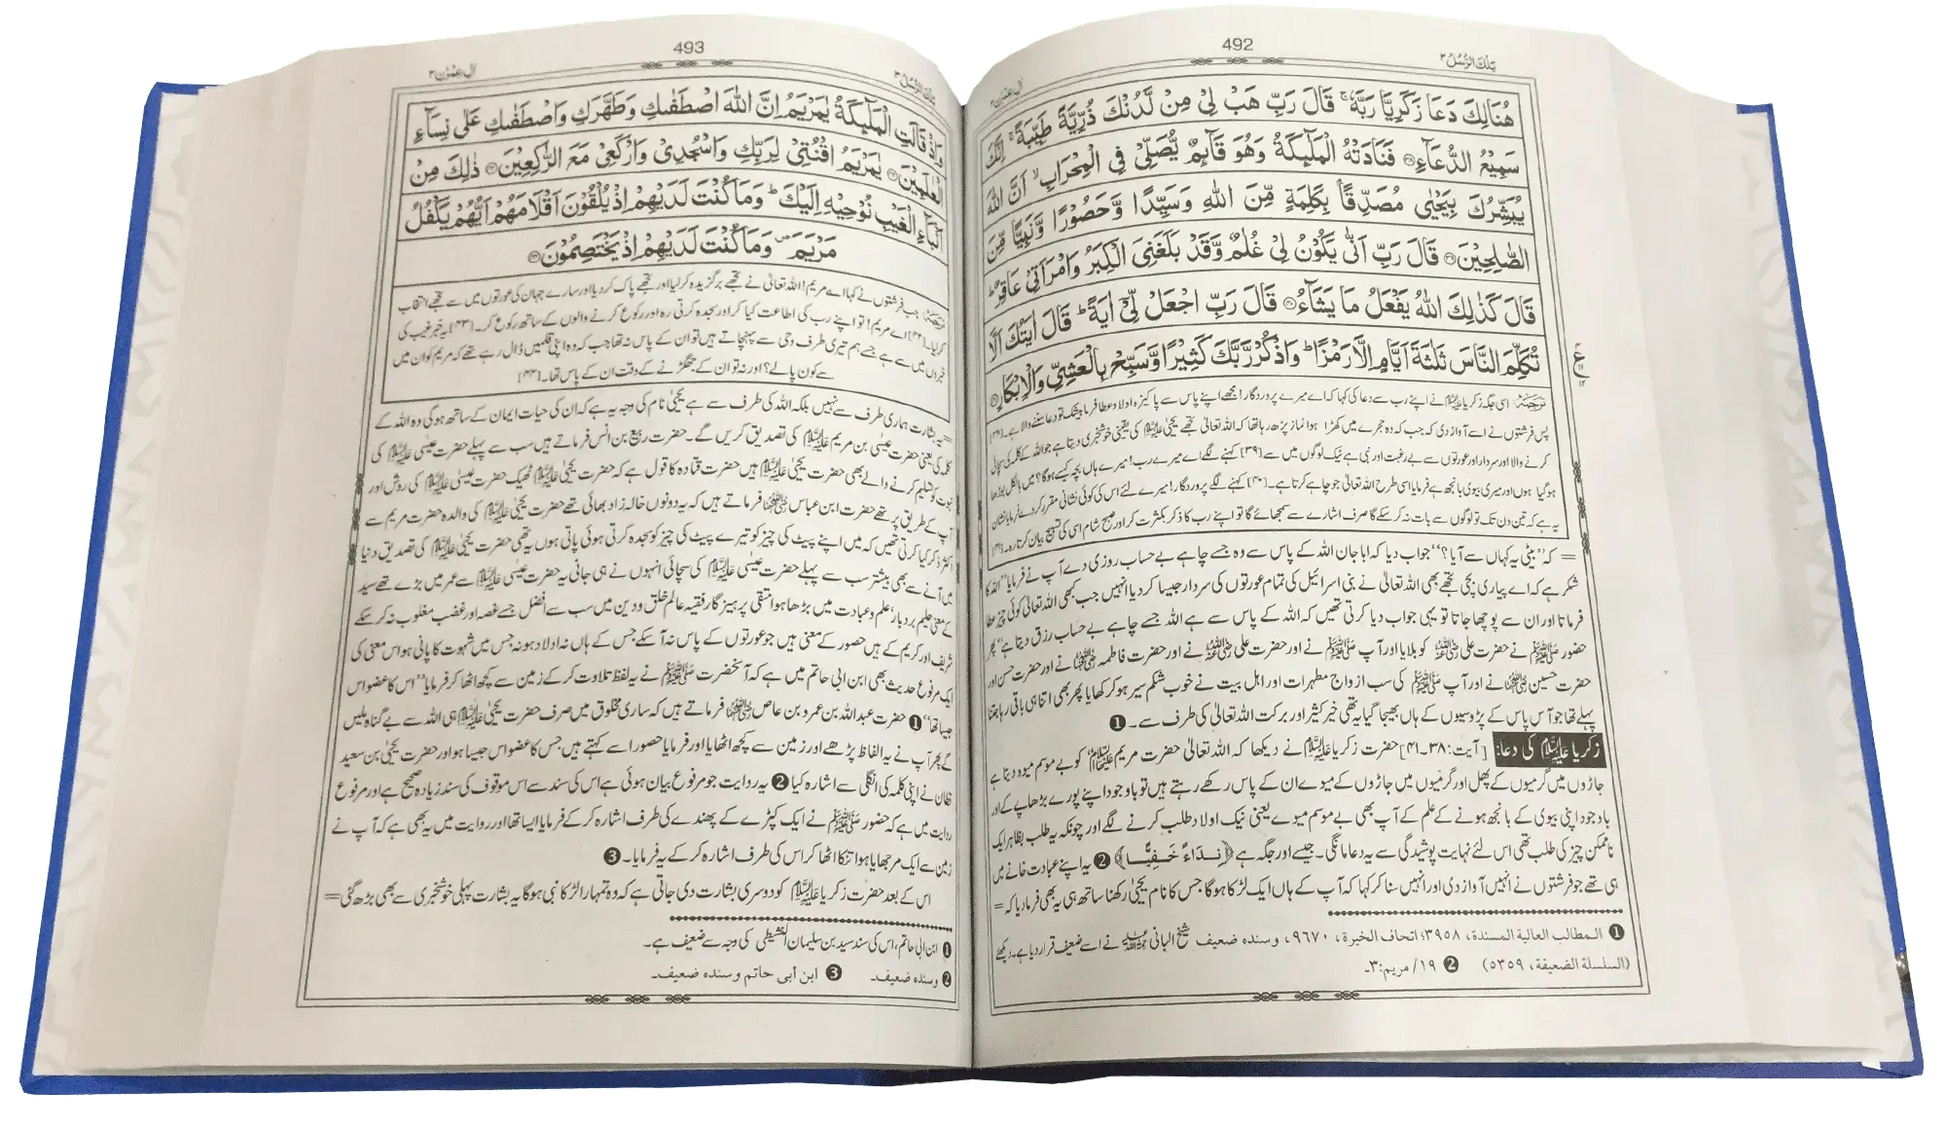 492
تِلْكَ الرُّسُلُ ۳
اٰلِ عِمْرٰن ۳
هُنَالِكَ دَعَا زَكَرِيَّا رَبَّهٗ ۚ قَالَ رَبِّ هَبْ لِيْ مِنْ لَّدُنْكَ ذُرِّيَّةً طَيِّبَةً ۚ اِنَّكَ
سَمِيْعُ الدُّعَآءِ۝۳۸ فَنَادَتْهُ الْمَلٰٓىِٕكَةُ وَهُوَ قَآىِٕمٌ يُّصَلِّيْ فِي الْمِحْرَابِ ۙ اَنَّ اللّٰهَ
يُبَشِّرُكَ بِيَحْيٰى مُصَدِّقًۢا بِكَلِمَةٍ مِّنَ اللّٰهِ وَسَيِّدًا وَّحَصُوْرًا وَّنَبِيًّا مِّنَ
الصّٰلِحِيْنَ۝۳۹ قَالَ رَبِّ اَنّٰى يَكُوْنُ لِيْ غُلٰمٌ وَّقَدْ بَلَغَنِيَ الْكِبَرُ وَامْرَاَتِيْ عَاقِرٌ ؕ
قَالَ كَذٰلِكَ اللّٰهُ يَفْعَلُ مَا يَشَآءُ۝۴۰ قَالَ رَبِّ اجْعَلْ لِّيْٓ اٰيَةً ؕ قَالَ اٰيَتُكَ اَلَّا
تُكَلِّمَ النَّاسَ ثَلٰثَةَ اَيَّامٍ اِلَّا رَمْزًا ؕ وَاذْكُرْ رَّبَّكَ كَثِيْرًا وَّسَبِّحْ بِالْعَشِيِّ وَالْاِبْكَارِ۝۴۱
ترجمہ: اسی جگہ زکریا علیہ السلام نے اپنے رب سے دعا کی کہا کہ اے میرے پروردگار! مجھے اپنے پاس سے پاکیزہ اولاد عطا فرما بیشک تو دعا سننے والا ہے۔[۳۸]
پس فرشتوں نے اسے آواز دی کہ جب کہ وہ حجرے میں کھڑا ہوا نماز پڑھ رہا تھا کہ اللہ تعالیٰ تجھے یحییٰ علیہ السلام کی یقینی خوشخبری دیتا ہے جو اللہ کے کلمہ کی سچائی
کرنے والا اور سردار اور عورتوں سے بے رغبت اور نبی ہے نیک لوگوں میں سے [۳۹] کہنے لگے اے میرے رب! میرے ہاں بچہ کیسے ہوگا؟ میں بالکل بوڑھا
ہو گیا ہوں اور میری بیوی بانجھ ہے فرمایا اسی طرح اللہ تعالیٰ جو چاہے کرتا ہے۔[۴۰] کہنے لگے پروردگار! میرے لئے اس کی کوئی نشانی مقرر کر دے فرمایا نشان
یہ ہے کہ تین دن تک تو لوگوں سے بات نہ کر سکے گا صرف اشارے سے سمجھائے گا تو اپنے رب کا ذکر بکثرت کر اور صبح شام اسی کی تسبیح بیان کرتا رہ۔[۴۱]
= کہ ”بیٹی یہ کہاں سے آیا؟“ جواب دیا کہ ابا جان اللہ کے پاس سے وہ جسے چاہے بے حساب روزی دے آپ نے فرمایا ”اللہ کا
شکر ہے کہ اے پیاری بچی تجھے بھی اللہ تعالیٰ نے بنی اسرائیل کی تمام عورتوں کی سردار جیسا کر دیا انہیں جب کبھی اللہ تعالیٰ کوئی چیز عطا
فرماتا اور ان سے پوچھا جاتا تو یہی جواب دیا کرتی تھیں کہ اللہ کے پاس سے ہے اللہ جسے چاہے بے حساب رزق دیتا ہے“ پھر
حضور ﷺ نے حضرت علی رضی اللہ عنہ کو بلایا اور آپ ﷺ نے اور حضرت علی رضی اللہ عنہ نے اور حضرت فاطمہ رضی اللہ عنہا نے اور حضرت حسن اور
حضرت حسین رضی اللہ عنہما نے اور آپ ﷺ کی سب ازواج مطہرات اور اہل بیت نے خوب شکم سیر ہو کر کھایا پھر بھی اتنا ہی باقی رہا جتنا
پہلے تھا جو آس پاس کے پڑوسیوں کے ہاں بھیجا گیا یہ تھی خیر کثیر اور برکت اللہ تعالیٰ کی طرف سے۔ ❶
زکریا علیہ السلام کی دعا: [آیت:۳۸۔۴۱] حضرت زکریا علیہ السلام نے دیکھا کہ اللہ تعالیٰ حضرت مریم علیہا السلام کو بے موسم میوہ دیتا ہے
جاڑوں میں گرمیوں کے پھل اور گرمیوں میں جاڑوں کے میوے ان کے پاس رکھے رہتے ہیں تو باوجود اپنے پورے بڑھاپے کے اور
باوجود اپنی بیوی کے بانجھ ہونے کے علم کے آپ بھی بے موسم میوے یعنی نیک اولاد طلب کرنے لگے اور چونکہ یہ طلب بظاہر ایک
ناممکن چیز کی طلب تھی اس لئے نہایت پوشیدگی سے یہ دعا مانگی۔ جیسے اور جگہ ہے ﴿نِدَاءً خَفِيًّا﴾ ❷ یہ اپنے عبادت خانے میں
ہی تھے جو فرشتوں نے انہیں آواز دی اور انہیں سنا کر کہا کہ آپ کے ہاں ایک لڑکا ہوگا جس کا نام یحییٰ رکھنا ساتھ ہی یہ بھی فرما دیا کہ =
❶ المطالب العالیة المسندة، ۳۹۵۸؛ اتحاف الخیرة، ۹۶۷۰، وسنده ضعیف شیخ البانی رحمہ اللہ نے اسے ضعیف قرار دیا ہے۔ دیکھئے
(السلسلة الضعیفة، ۵۳۵۹) ❷ ۱۹/ مریم:۳۔
493
تِلْكَ الرُّسُلُ ۳
اٰلِ عِمْرٰن ۳
وَاِذْ قَالَتِ الْمَلٰٓىِٕكَةُ يٰمَرْيَمُ اِنَّ اللّٰهَ اصْطَفٰىكِ وَطَهَّرَكِ وَاصْطَفٰىكِ عَلٰى نِسَآءِ
الْعٰلَمِيْنَ۝۴۲ يٰمَرْيَمُ اقْنُتِيْ لِرَبِّكِ وَاسْجُدِيْ وَارْكَعِيْ مَعَ الرّٰكِعِيْنَ۝۴۳ ذٰلِكَ مِنْ
اَنْۢبَآءِ الْغَيْبِ نُوْحِيْهِ اِلَيْكَ ؕ وَمَا كُنْتَ لَدَيْهِمْ اِذْ يُلْقُوْنَ اَقْلَامَهُمْ اَيُّهُمْ يَكْفُلُ
مَرْيَمَ ۪ وَمَا كُنْتَ لَدَيْهِمْ اِذْ يَخْتَصِمُوْنَ۝۴۴
ترجمہ: جب فرشتوں نے کہا اے مریم! اللہ تعالیٰ نے تجھے برگزیدہ کر لیا اور تجھے پاک کر دیا اور سارے جہان کی عورتوں میں سے تجھے انتخاب
کر لیا۔[۴۲] اے مریم! تو اپنے رب کی اطاعت کیا کر اور سجدہ کرتی رہ اور رکوع کرنے والوں کے ساتھ رکوع کر۔[۴۳] یہ خبر غیب کی
خبروں میں سے ہے جسے ہم تیری طرف وحی سے پہنچاتے ہیں تو ان کے پاس نہ تھا جب کہ وہ اپنی قلمیں ڈال رہے تھے کہ مریم کو ان میں
سے کون پالے گا؟ اور نہ تو ان کے جھگڑنے کے وقت ان کے پاس تھا۔[۴۴]
= یہ بشارت ہماری طرف سے نہیں بلکہ اللہ کی طرف سے ہے یحییٰ نام کی وجہ یہ ہے کہ ان کی حیات ایمان کے ساتھ ہوگی وہ اللہ کے
کلمہ کی یعنی حضرت عیسیٰ بن مریم علیہ السلام کی تصدیق کریں گے۔ حضرت ربیع بن انس فرماتے ہیں سب سے پہلے حضرت عیسیٰ علیہ السلام کی
نبوت کو تسلیم کرنے والے بھی حضرت یحییٰ علیہ السلام ہیں حضرت قتادہ کا قول ہے کہ حضرت یحییٰ علیہ السلام ٹھیک حضرت عیسیٰ علیہ السلام کی روش اور
آپ کے طریق پر تھے حضرت ابن عباس رضی اللہ عنہما فرماتے ہیں کہ یہ دونوں خالہ زاد بھائی تھے حضرت یحییٰ علیہ السلام کی والدہ حضرت مریم سے
اکثر ذکر کیا کرتی تھیں کہ میں اپنے پیٹ کی چیز کو تیرے پیٹ کی چیز کو سجدہ کرتی ہوئی پاتی ہوں یہ تھی حضرت یحییٰ علیہ السلام کی تصدیق دنیا
میں آنے سے بھی پیشتر سب سے پہلے حضرت عیسیٰ علیہ السلام کی سچائی انہوں نے ہی جانی یہ حضرت عیسیٰ علیہ السلام سے عمر میں بڑے تھے سید
کے معنی حلیم بردبار، علم و عبادت میں بڑھا ہوا متقی پرہیز گار فقیہ عالم خلق و دین میں سب سے افضل جسے غصہ اور غضب مغلوب نہ کر سکے
شریف اور کریم کے ہیں حصور کے معنی ہیں جو عورتوں کے پاس نہ آ سکے جس کے ہاں نہ اولاد ہو نہ جس میں شہوت کا پانی ہو اس معنی کی
ایک مرفوع حدیث بھی ابن ابی حاتم میں ہے کہ آنحضرت ﷺ نے یہ لفظ تلاوت کر کے زمین سے کچھ اٹھا کر فرمایا ”اس کا عضو اس
جیسا تھا“ ❶ حضرت عبداللہ بن عمرو بن عاص رضی اللہ عنہ فرماتے ہیں کہ ساری مخلوق میں صرف حضرت یحییٰ علیہ السلام ہی اللہ سے بے گناہ ملیں
گے پھر آپ نے یہ الفاظ پڑھے اور زمین سے کچھ اٹھایا اور فرمایا حصور اسے کہتے ہیں جس کا عضو اس جیسا ہو اور حضرت یحییٰ بن سعید
قطان نے اپنی کلمہ کی انگلی سے اشارہ کیا ❷ یہ روایت جو مرفوع بیان ہوئی ہے اس کی سند سے اس موقوف کی سند زیادہ صحیح ہے اور مرفوع
روایت میں ہے کہ حضور ﷺ نے ایک کپڑے کے پھندے کی طرف اشارہ کر کے فرمایا ایسا تھا اور روایت میں یہ بھی ہے کہ آپ نے
زمین سے ایک مرجھایا ہوا تنکا اٹھا کر اس کی طرف اشارہ کر کے یہ فرمایا۔ ❸
اس کے بعد حضرت زکریا علیہ السلام کو دوسری بشارت دی جاتی ہے کہ وہ تمہارا لڑکا نبی ہوگا یہ بشارت پہلی خوشخبری سے بھی بڑھ گئی =
❶ ابن ابی حاتم، اس کی سند سید بن سلیمان النشیطی کی وجہ سے ضعیف ہے۔
❷ وسنده ضعیف۔ ❸ ابن أبی حاتم وسنده ضعیف۔